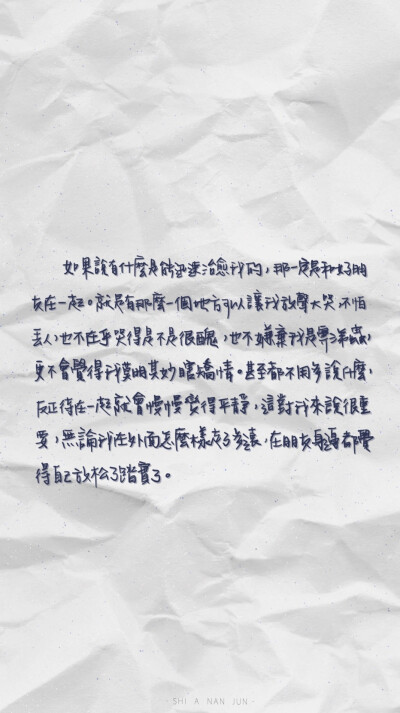 如果說有什麼是能迅速治愈我的，那一定是和好朋
友在一起。就是有那麼一個地方可以讓我放聲大哭，不怕
丟人，也不在乎哭得是不是很醜，也不嫌棄我是鼻涕蟲，
更不會覺得我莫明其妙瞎矯情。甚至都不用多說什麼，
反正待在一起就會慢慢變得平靜，這對我來說很重
要，無論我在外面怎麼樣走了多遠，在朋友身邊都覺
得自己放松了踏實了。
· SHI A NAN JUN ·